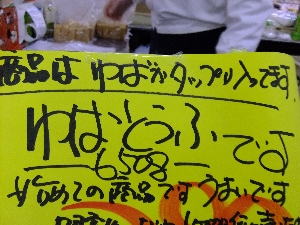 商品は ゆばがタップリ入ってます
ゆばどうふです
650g
始めての商品ですうまいです